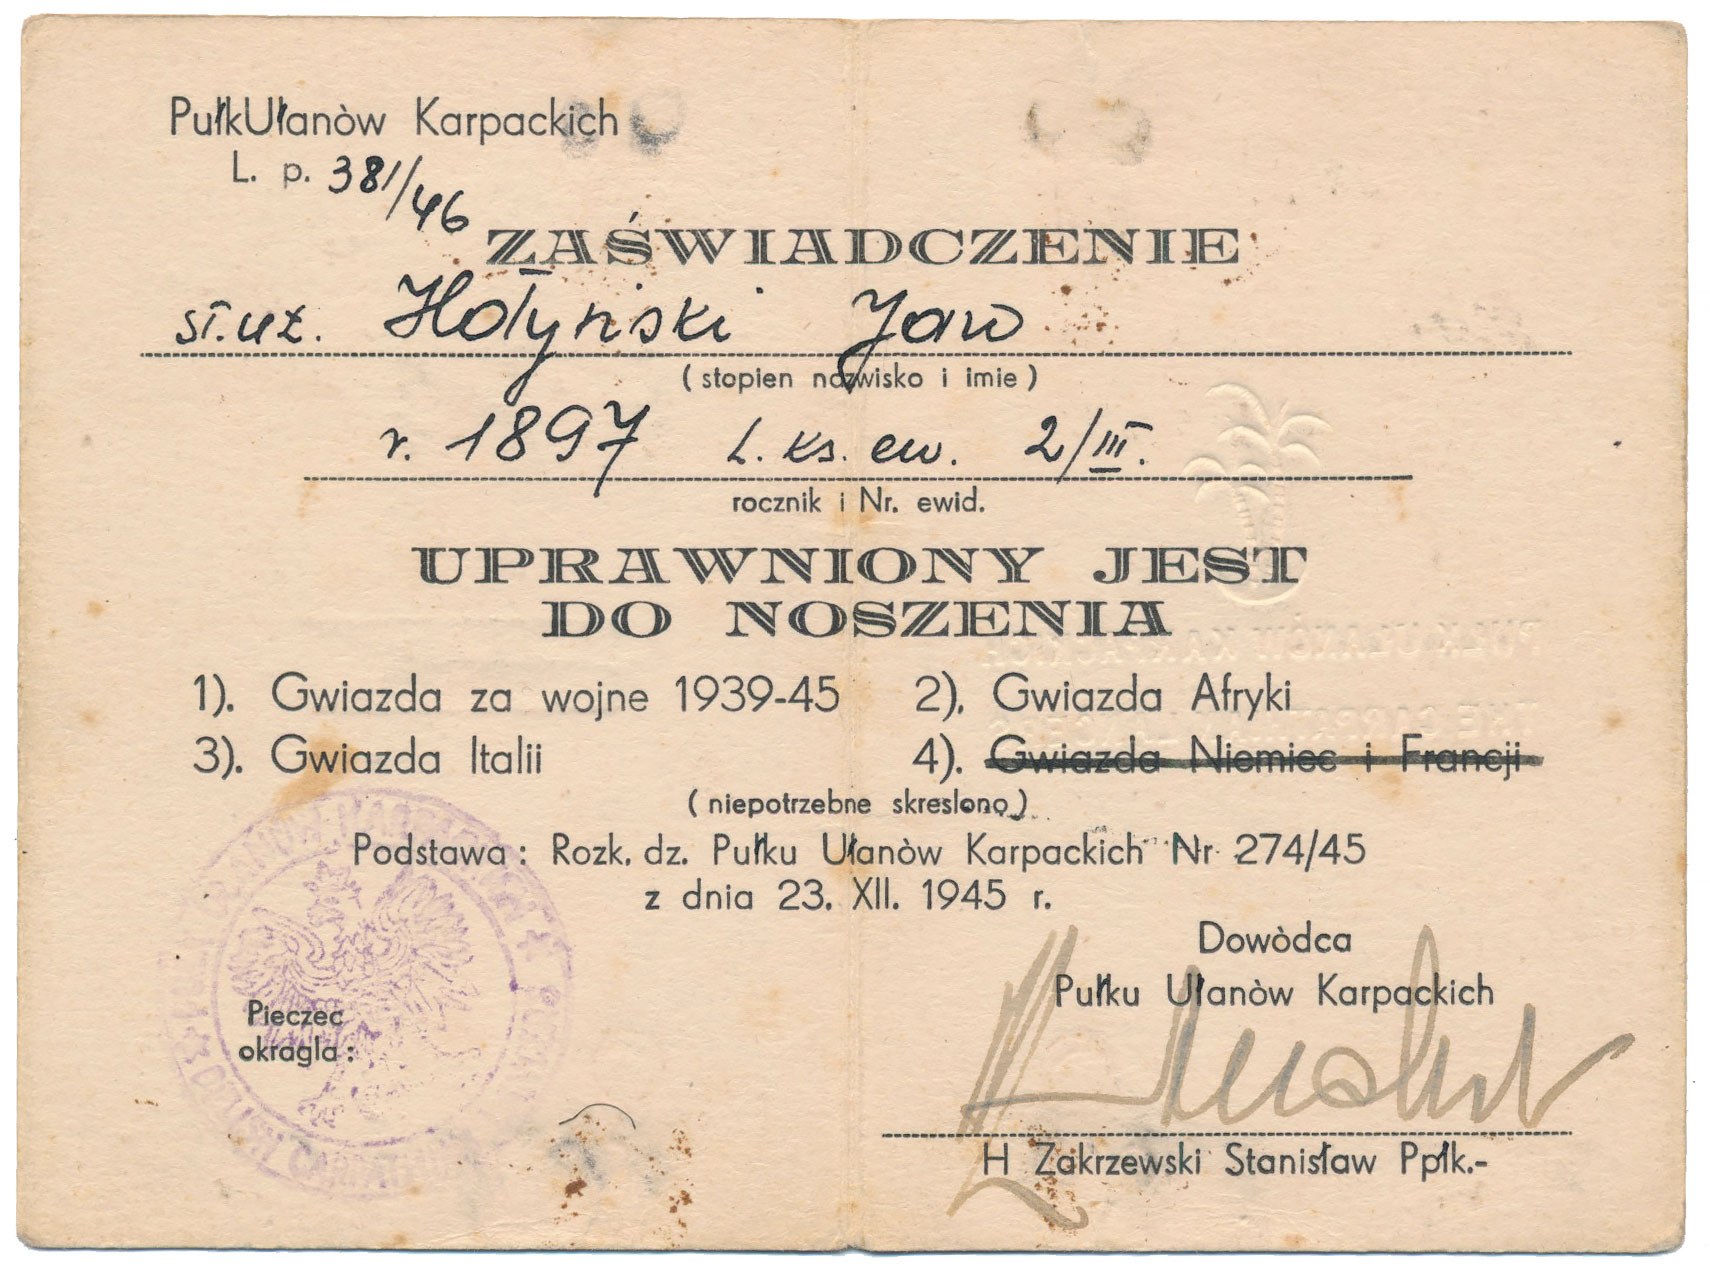 PułkUłanòw Karpackich
L. p. 381/46
ZAŚWIADCZENIE
st. uł. Hołyński Jan
( stopien nazwisko i imie )
r. 1897 L. ks. ew. 2/III.
rocznik i Nr. ewid.
UPRAWNIONY JEST
DO NOSZENIA
1). Gwiazda za wojne 1939-45 2). Gwiazda Afryki
3). Gwiazda Italii 4). Gwiazda Niemiec i Francji
( niepotrzebne skreslono )
Podstawa : Rozk. dz. Pułku Ułanòw Karpackich Nr 274/45
z dnia 23. XII. 1945 r.
Dowòdca
Pułku Ułanòw Karpackich
Pieczec
okragla :
H Zakrzewski Stanisław Ppłk.-
PUŁK UŁANÓW KARPACKICH